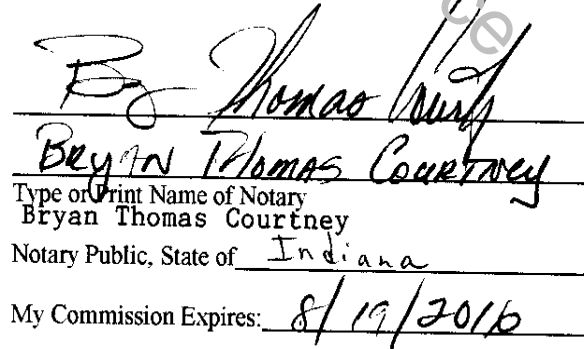 Bryan Thomas Courtney
BRYAN THOMAS COURTNEY
Type or Print Name of Notary
Bryan Thomas Courtney
Notary Public, State of Indiana
My Commission Expires: 8/19/2016